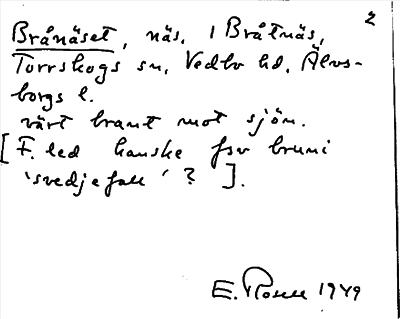 2
Brånäset, näs, i Bråtnäs,
Torrskogs sn, Vedbo hd, Älvs-
borgs l.
värt brant mot sjön.
[F. led kanske fsv bruni
'svedjefall'? ].
E. Rosell 1949